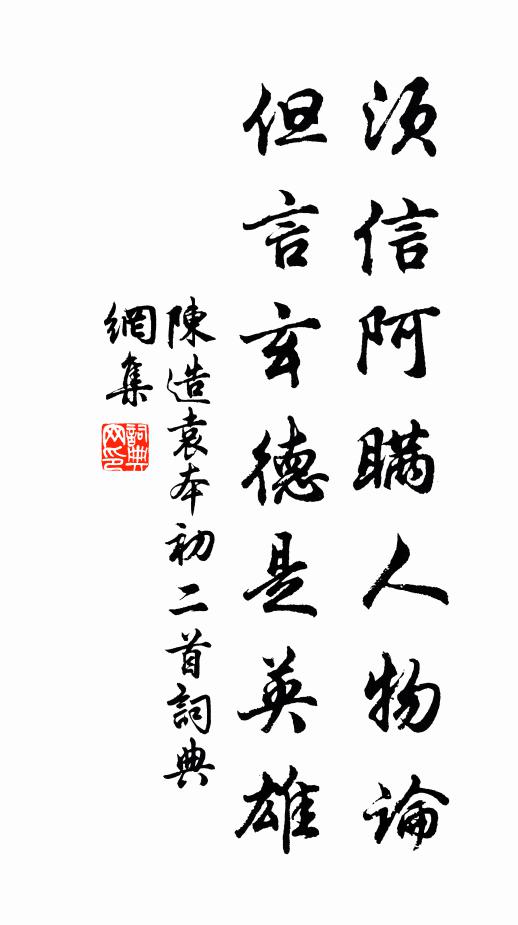 須信阿瞞人物論
但言玄德是英雄
陳造袁本初二首詞典
網集
詞典网印